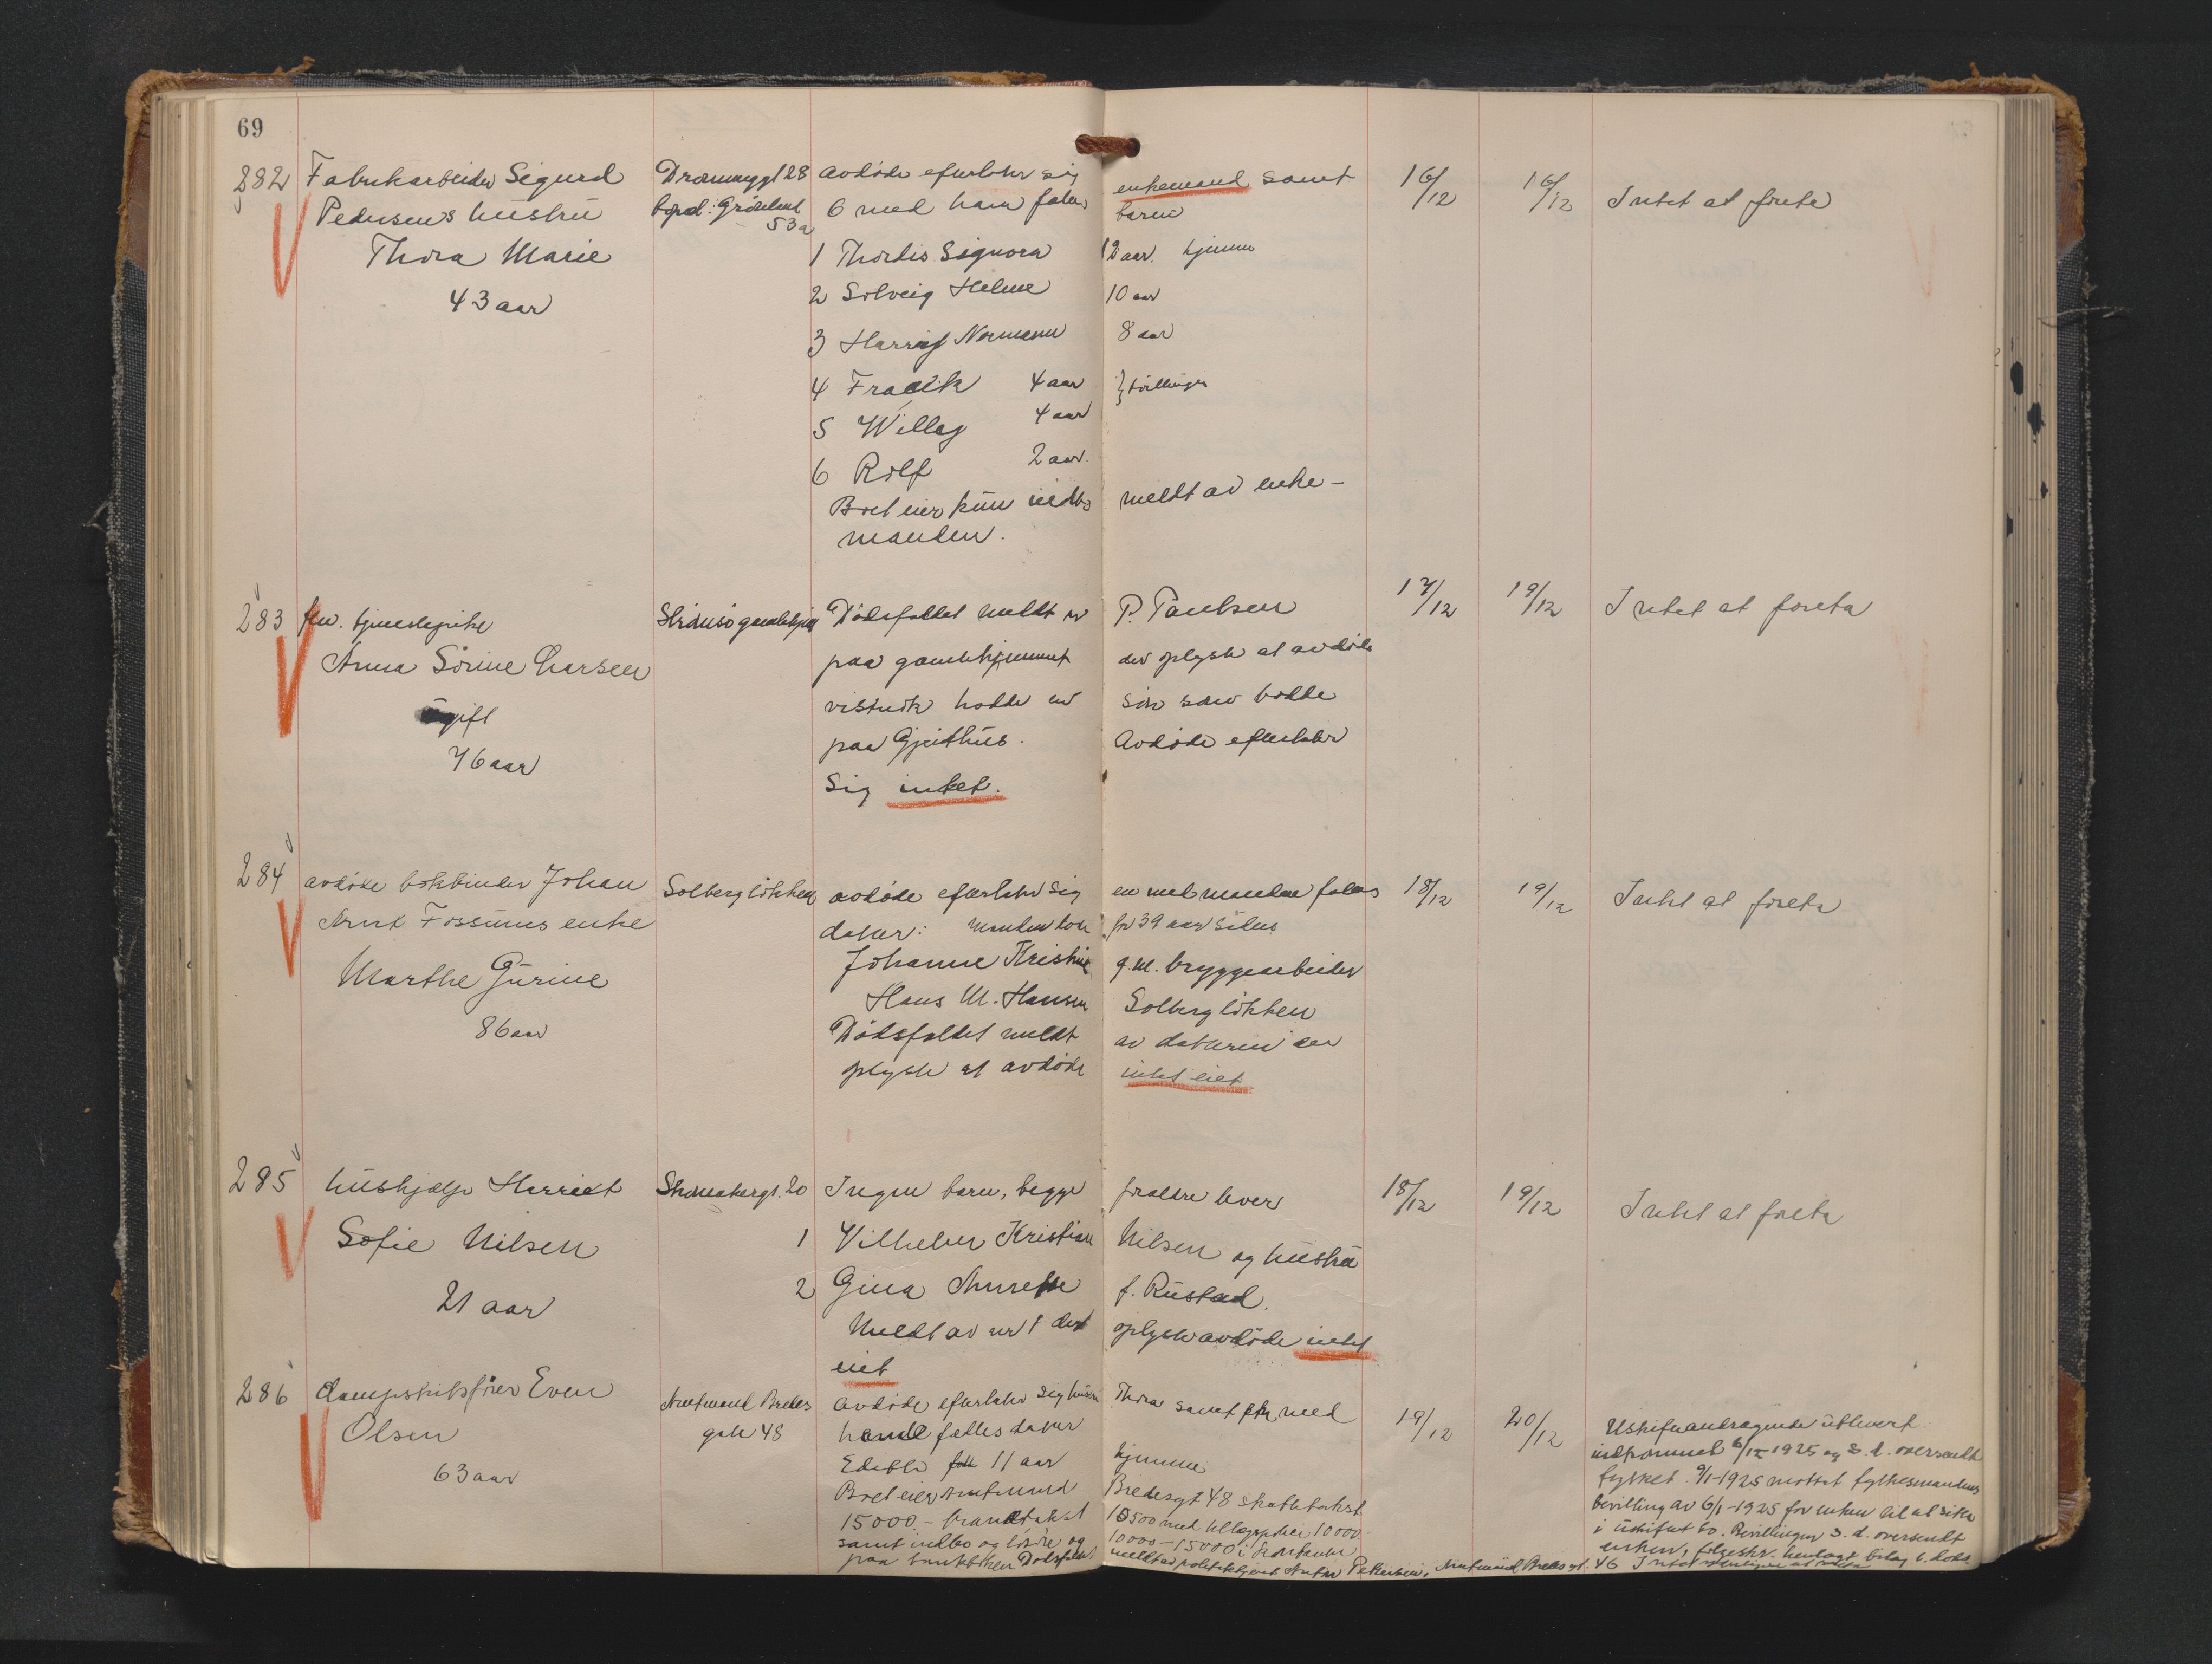 69
282 Fabrikarbeider Sigurd
Pedersens hustru
Thora Marie
43 aar
avdøde efterlater sig enkemand samt
6 med ham fælles barn
1 Thordis Signora 12 aar. hjemme
2 Solveig Helene 10 aar
3 Harry Normann 8 aar
4 Fredrik 4 aar } tvillinger
5 Willy 4 aar
6 Rolf 2 aar.
Boet eier kun indbo meldt av enke-
manden.
16/12 16/12 Intet at foreta
283 fhv. tjenestepike
Anna Sörine Larsen
ugift
76 aar
Strömsö gamlehjem
Dödsfaldet meldt av P. Paulsen
paa gamlehjemmet der oplyste at avdöde
vistnok hadde en sön som bodde
paa Gjeithus. Avdöde efterlater
sig intet.
17/12 19/12 Intet at foreta
284 avdöde bokbinder Johan
Arnt Fossums enke
Marthe Gurine
86 aar
Solberglökken
avdöde efterlater sig en med manden fælles
datter: manden död for 39 aar siden
Johanne Kristine g.m. bryggearbeider
Hans M. Hansen Solberglökken
Dödsfaldet meldt av datteren der
oplyste at avdöde intet eiet
18/12 19/12 Intet at foreta
285 hushjælp Harriet
Sofie Nilsen
21 aar
20
Ingen barn, begge forældre lever
1 Vilhelm Kristian Nilsen og hustru
2 Gina Annette f. Rustad.
Meldt av nr 1 der oplyste avdöde intet
eiet
18/12 19/12 Intet at foreta
286 dampskibsförer Even
Olsen
63 aar
Amtmand Bredes
gate 48
avdöde efterlater sig hustru Thora samt en med
hende fælles datter
Edith 11 aar hjemme
Boet eier Amtmand Bredesgt 48 skattetakst
15000 - brandtakst 10500 med tillægspolice 10000
samt indbo og lösöre og 10000-15000 i kontanter
paa bankboken Dödsfaldet meldt av politibetjent Anton Pettersen, Amtmand Bredes gt. 46
19/12 20/12 Uskifteandragende utlevert
indkommet 6/1-1925 og s.d. oversendt
fylket. 9/1-1925 mottat fylkesmandens
bevilling av 6/1-1925 for enken til at sitte
i uskiftet bo. Bevillingen s.d. oversendt
enken, fölgeskr. henlagt bilag t. döds
Intet at foreta